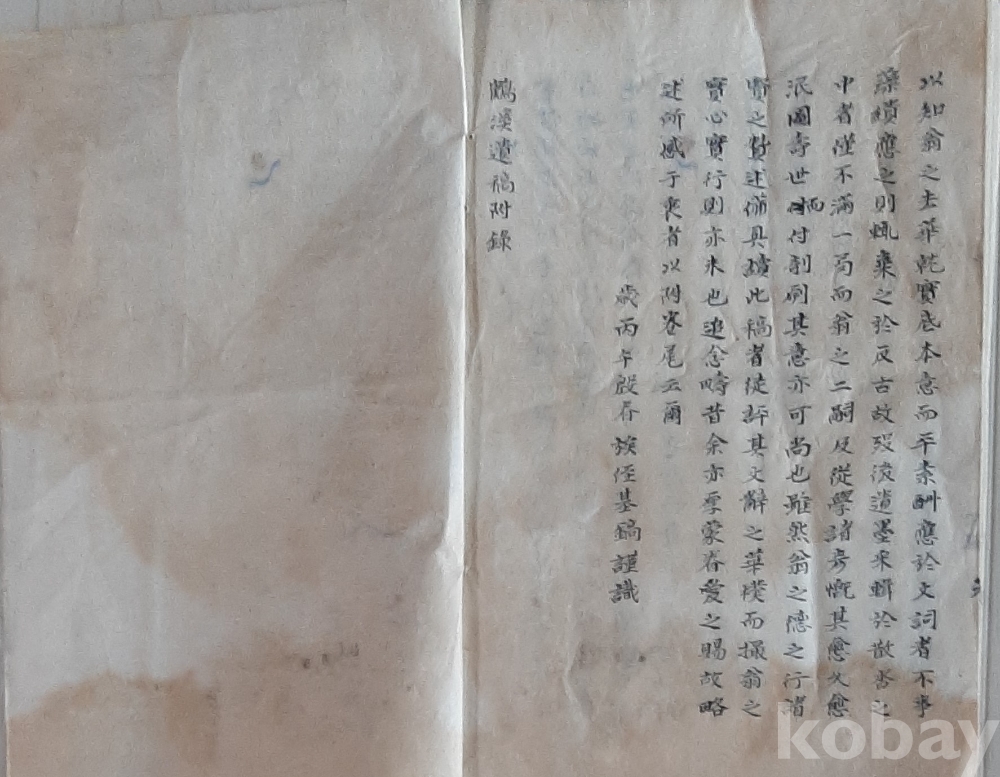 以知翁之去華就實底本意而平素酬應於文詞者不事
藻繢應之則輒棄之於反古故歿後遺墨采輯於散否之
中者僅不滿一局而翁之二嗣及從學諸彥慨其愈久愈
泯圖壽世而付剞劂其意亦可尚也雖然翁之德之行諸
賢之贊述備具讀此稿者徒評其文辭之華樸而撮翁之
實心實行則亦末也追念疇昔余亦厚蒙眷愛之賜故略
述所感于衷者以附卷尾云爾
歲丙午殷春族侄基鎬謹識
溪遺稿附錄
kobay